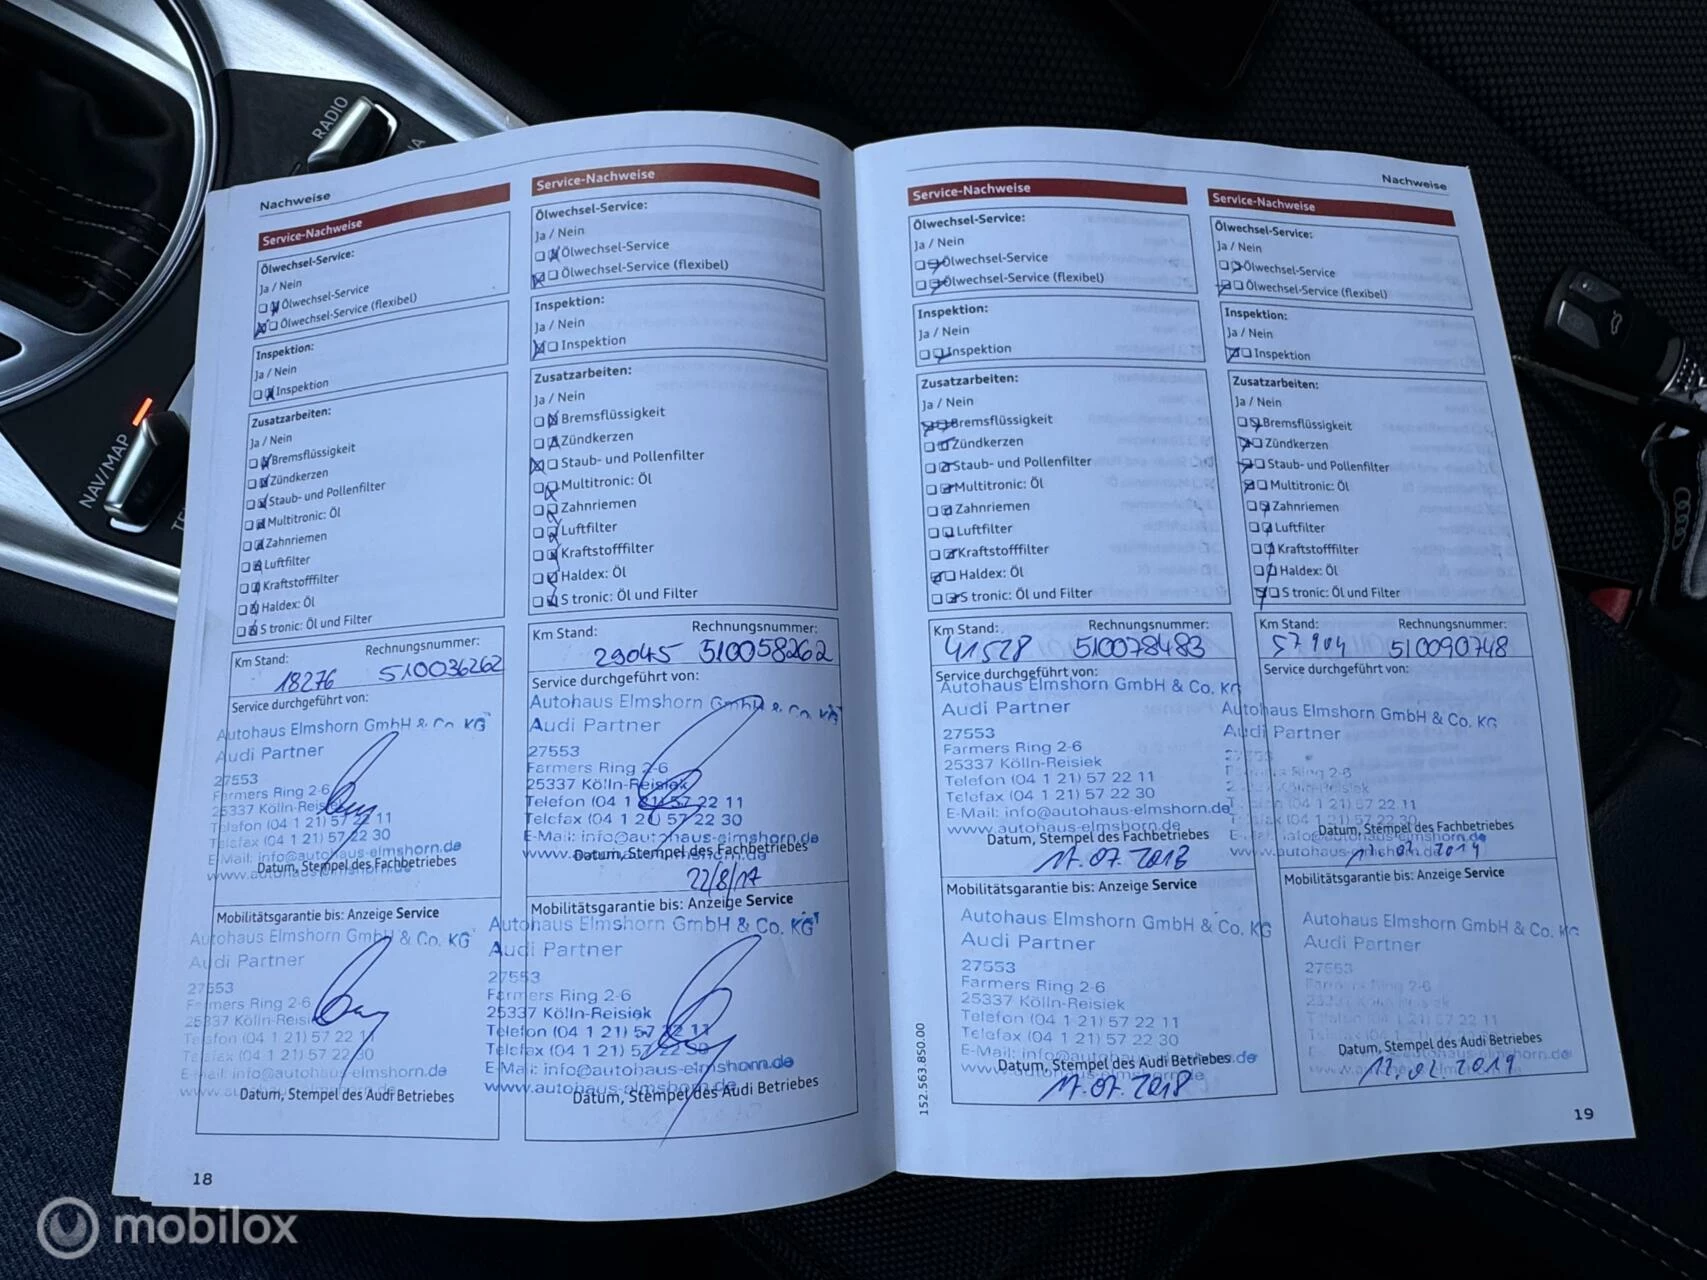 RADIO
NAV/MAP
Nachweise
Service-Nachweise
Ölwechsel-Service:
Ja / Nein
Ölwechsel-Service
Ölwechsel-Service (flexibel)
Inspektion:
Ja / Nein
Inspektion
Zusatzarbeiten:
Ja / Nein
Bremsflüssigkeit
Zündkerzen
Staub- und Pollenfilter
Multitronic: Öl
Zahnriemen
Luftfilter
Kraftstofffilter
Haldex: Öl
S tronic: Öl und Filter
Km Stand: Rechnungsnummer:
18276 510036262
Service durchgeführt von:
Autohaus Elmshorn GmbH & Co. KG
Audi Partner
27553
Farmers Ring 2-6
25337 Kölln-Reisiek
Telefon (04 1 21) 57 22 11
Telefax (04 1 21) 57 22 30
E-Mail: info@autohaus-elmshorn.de
Datum, Stempel des Fachbetriebes
Mobilitätsgarantie bis: Anzeige Service
Autohaus Elmshorn GmbH & Co. KG
Audi Partner
27553
Farmers Ring 2-6
25337 Kölln-Reisiek
Telefon (04 1 21) 57 22 11
Telefax (04 1 21) 57 22 30
E-Mail: info@autohaus-elmshorn.de
Datum, Stempel des Audi Betriebes
18
Service-Nachweise
Ölwechsel-Service:
Ja / Nein
Ölwechsel-Service
Ölwechsel-Service (flexibel)
Inspektion:
Ja / Nein
Inspektion
Zusatzarbeiten:
Ja / Nein
Bremsflüssigkeit
Zündkerzen
Staub- und Pollenfilter
Multitronic: Öl
Zahnriemen
Luftfilter
Kraftstofffilter
Haldex: Öl
S tronic: Öl und Filter
Km Stand: Rechnungsnummer:
29045 510058262
Service durchgeführt von:
Autohaus Elmshorn GmbH & Co. KG
Audi Partner
27553
Farmers Ring 2-6
25337 Kölln-Reisiek
Telefon (04 1 21) 57 22 11
Telefax (04 1 21) 57 22 30
E-Mail: info@autohaus-elmshorn.de
www.autohaus-elmshorn.de
Datum, Stempel des Fachbetriebes
22/8/17
Mobilitätsgarantie bis: Anzeige Service
Autohaus Elmshorn GmbH & Co. KG
Audi Partner
27553
Farmers Ring 2-6
25337 Kölln-Reisiek
Telefon (04 1 21) 57 22 11
Telefax (04 1 21) 57 22 30
E-Mail: info@autohaus-elmshorn.de
www.autohaus-elmshorn.de
Datum, Stempel des Audi Betriebes
Service-Nachweise
Ölwechsel-Service:
Ja / Nein
Ölwechsel-Service
Ölwechsel-Service (flexibel)
Inspektion:
Ja / Nein
Inspektion
Zusatzarbeiten:
Ja / Nein
Bremsflüssigkeit
Zündkerzen
Staub- und Pollenfilter
Multitronic: Öl
Zahnriemen
Luftfilter
Kraftstofffilter
Haldex: Öl
S tronic: Öl und Filter
Km Stand: Rechnungsnummer:
41528 510078483
Service durchgeführt von:
Autohaus Elmshorn GmbH & Co. KG
Audi Partner
27553
Farmers Ring 2-6
25337 Kölln-Reisiek
Telefon (04 1 21) 57 22 11
Telefax (04 1 21) 57 22 30
E-Mail: info@autohaus-elmshorn.de
www.autohaus-elmshorn.de
Datum, Stempel des Fachbetriebes
17.07.2018
Mobilitätsgarantie bis: Anzeige Service
Autohaus Elmshorn GmbH & Co. KG
Audi Partner
27553
Farmers Ring 2-6
25337 Kölln-Reisiek
Telefon (04 1 21) 57 22 11
Telefax (04 1 21) 57 22 30
E-Mail: info@autohaus-elmshorn.de
Datum, Stempel des Audi Betriebes
17.07.2018
152.563.850.00
Nachweise
Service-Nachweise
Ölwechsel-Service:
Ja / Nein
Ölwechsel-Service
Ölwechsel-Service (flexibel)
Inspektion:
Ja / Nein
Inspektion
Zusatzarbeiten:
Ja / Nein
Bremsflüssigkeit
Zündkerzen
Staub- und Pollenfilter
Multitronic: Öl
Zahnriemen
Luftfilter
Kraftstofffilter
Haldex: Öl
S tronic: Öl und Filter
Km Stand: Rechnungsnummer:
57904 510090748
Service durchgeführt von:
Autohaus Elmshorn GmbH & Co. KG
Audi Partner
Datum, Stempel des Fachbetriebes
Mobilitätsgarantie bis: Anzeige Service
Autohaus Elmshorn GmbH & Co. KG
Audi Partner
27553
Datum, Stempel des Audi Betriebes
12.02.2019
19
mobilox